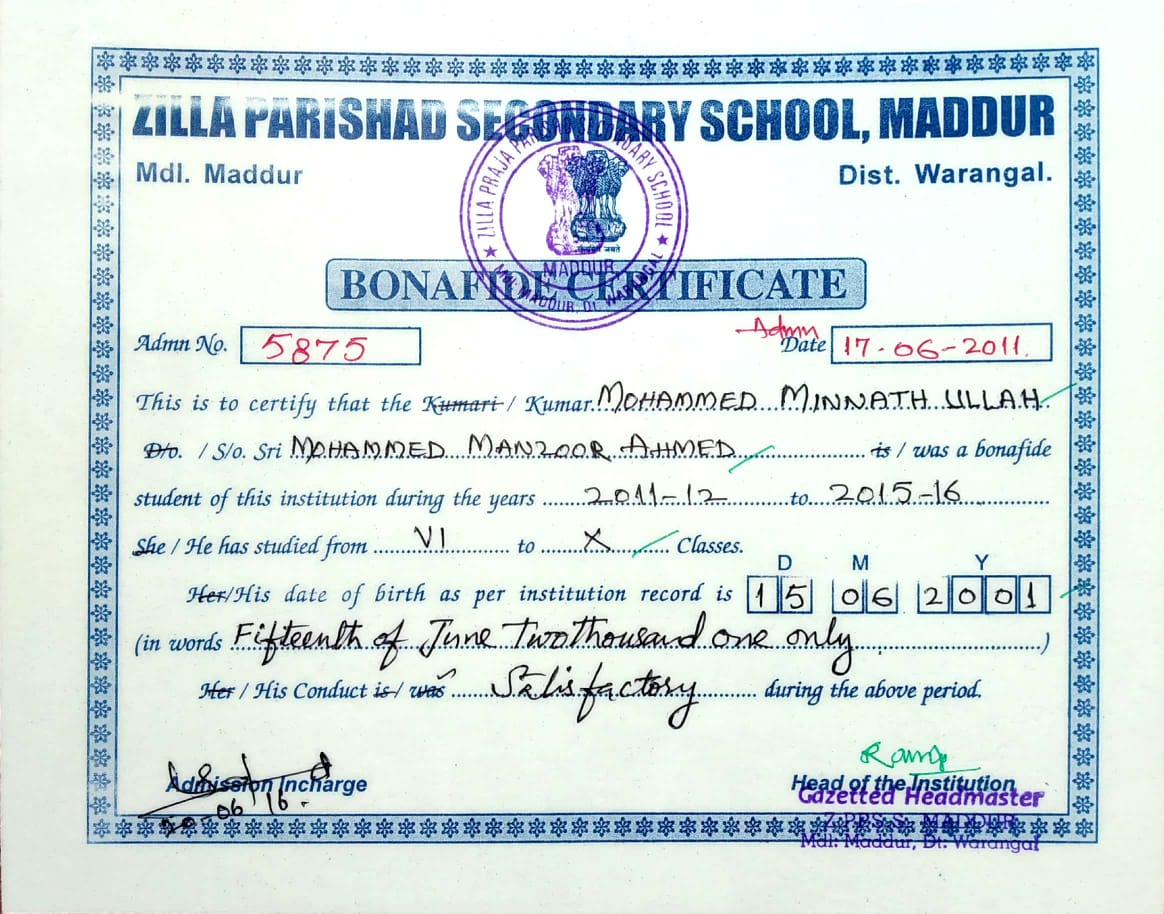 ZILLA PARISHAD SECONDARY SCHOOL, MADDUR
Mdl. Maddur Dist. Warangal.
ZILLA PRAJA PARISHAD SECONDARY SCHOOL
MADDUR
Mdl. MADDUR, Dt. WARANGAL
BONAFIDE CERTIFICATE
Admn No. 5875 Admn Date 17-06-2011.
This is to certify that the Kumari / Kumar MOHAMMED MINNATH ULLAH
D/o. / S/o. Sri MOHAMMED MANZOOR AHMED is / was a bonafide
student of this institution during the years 2011-12 to 2015-16
She / He has studied from VI to X Classes.
D M Y
Her/His date of birth as per institution record is 15 06 2001
(in words Fifteenth of June Twothousand one only )
Her / His Conduct is / was Satisfactory during the above period.
Admission Incharge Head of the Institution
20-06-16.
Gazetted Headmaster
Z.P.P.S.S. MADDUR
Mdl: Maddur, Dt: Warangal